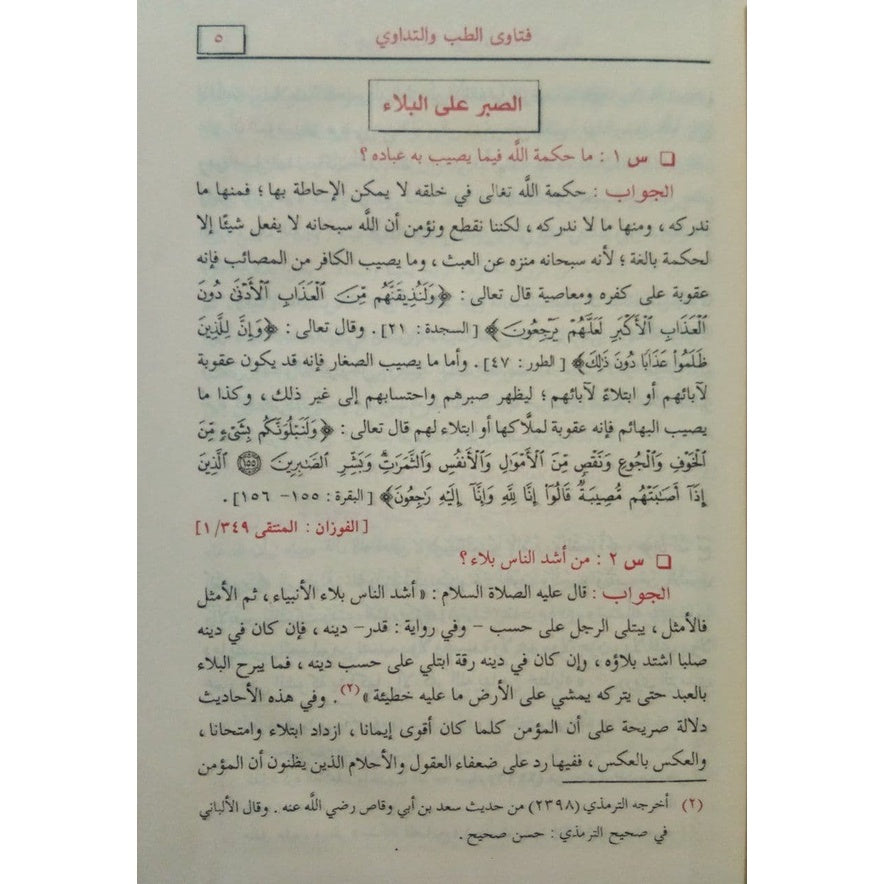 فتاوى الطب والتداوي
٥
الصبر على البلاء
❑ س ١ : ما حكمة اللَّه فيما يصيب به عباده ؟
الجواب : حكمة اللَّه تعالى في خلقه لا يمكن الإحاطة بها ؛ فمنها ما
ندركه ، ومنها ما لا ندركه ، لكننا نقطع ونؤمن أن اللَّه سبحانه لا يفعل شيئًا إلا
لحكمة بالغة ؛ لأنه سبحانه منزه عن العبث ، وما يصيب الكافر من المصائب فإنه
عقوبة على كفره ومعاصية قال تعالى : ﴿وَلَنُذِيقَنَّهُم مِّنَ ٱلْعَذَابِ ٱلْأَدْنَىٰ دُونَ
ٱلْعَذَابِ ٱلْأَكْبَرِ لَعَلَّهُمْ يَرْجِعُونَ﴾ [السجدة : ٢١] . وقال تعالى : ﴿وَإِنَّ لِلَّذِينَ
ظَلَمُوا۟ عَذَابًا دُونَ ذَٰلِكَ﴾ [الطور : ٤٧] . وأما ما يصيب الصغار فإنه قد يكون عقوبة
لآبائهم أو ابتلاءً لآبائهم ؛ ليظهر صبرهم واحتسابهم إلى غير ذلك ، وكذا ما
يصيب البهائم فإنه عقوبة لملاَّكها أو ابتلاء لهم قال تعالى : ﴿وَلَنَبْلُوَنَّكُم بِشَىْءٍ مِّنَ
ٱلْخَوْفِ وَٱلْجُوعِ وَنَقْصٍ مِّنَ ٱلْأَمْوَٰلِ وَٱلْأَنفُسِ وَٱلثَّمَرَٰتِ ۗ وَبَشِّرِ ٱلصَّـٰبِرِينَ ١٥٥ ٱلَّذِينَ
إِذَآ أَصَـٰبَتْهُم مُّصِيبَةٌ قَالُوٓا۟ إِنَّا لِلَّهِ وَإِنَّآ إِلَيْهِ رَٰجِعُونَ﴾ [البقرة : ١٥٥- ١٥٦] .
[الفوزان : المنتقى ١/٣٤٩]
❑ س ٢ : من أشد الناس بلاء ؟
الجواب : قال عليه الصلاة السلام : «أشد الناس بلاء الأنبياء ، ثم الأمثل
فالأمثل ، يبتلى الرجل على حسب - وفي رواية : قدر- دينه ، فإن كان في دينه
صلبا اشتد بلاؤه ، وإن كان في دينه رقة ابتلي على حسب دينه ، فما يبرح البلاء
بالعبد حتى يتركه يمشي على الأرض ما عليه خطيئة »(٢). وفي هذه الأحاديث
دلالة صريحة على أن المؤمن كلما كان أقوى إيمانا ، ازداد ابتلاء وامتحانا ،
والعكس بالعكس ، ففيها رد على ضعفاء العقول والأحلام الذين يظنون أن المؤمن
(٢) أخرجه الترمذي (٢٣٩٨) من حديث سعد بن أبي وقاص رضي اللَّه عنه . وقال الألباني
في صحيح الترمذي : حسن صحيح .